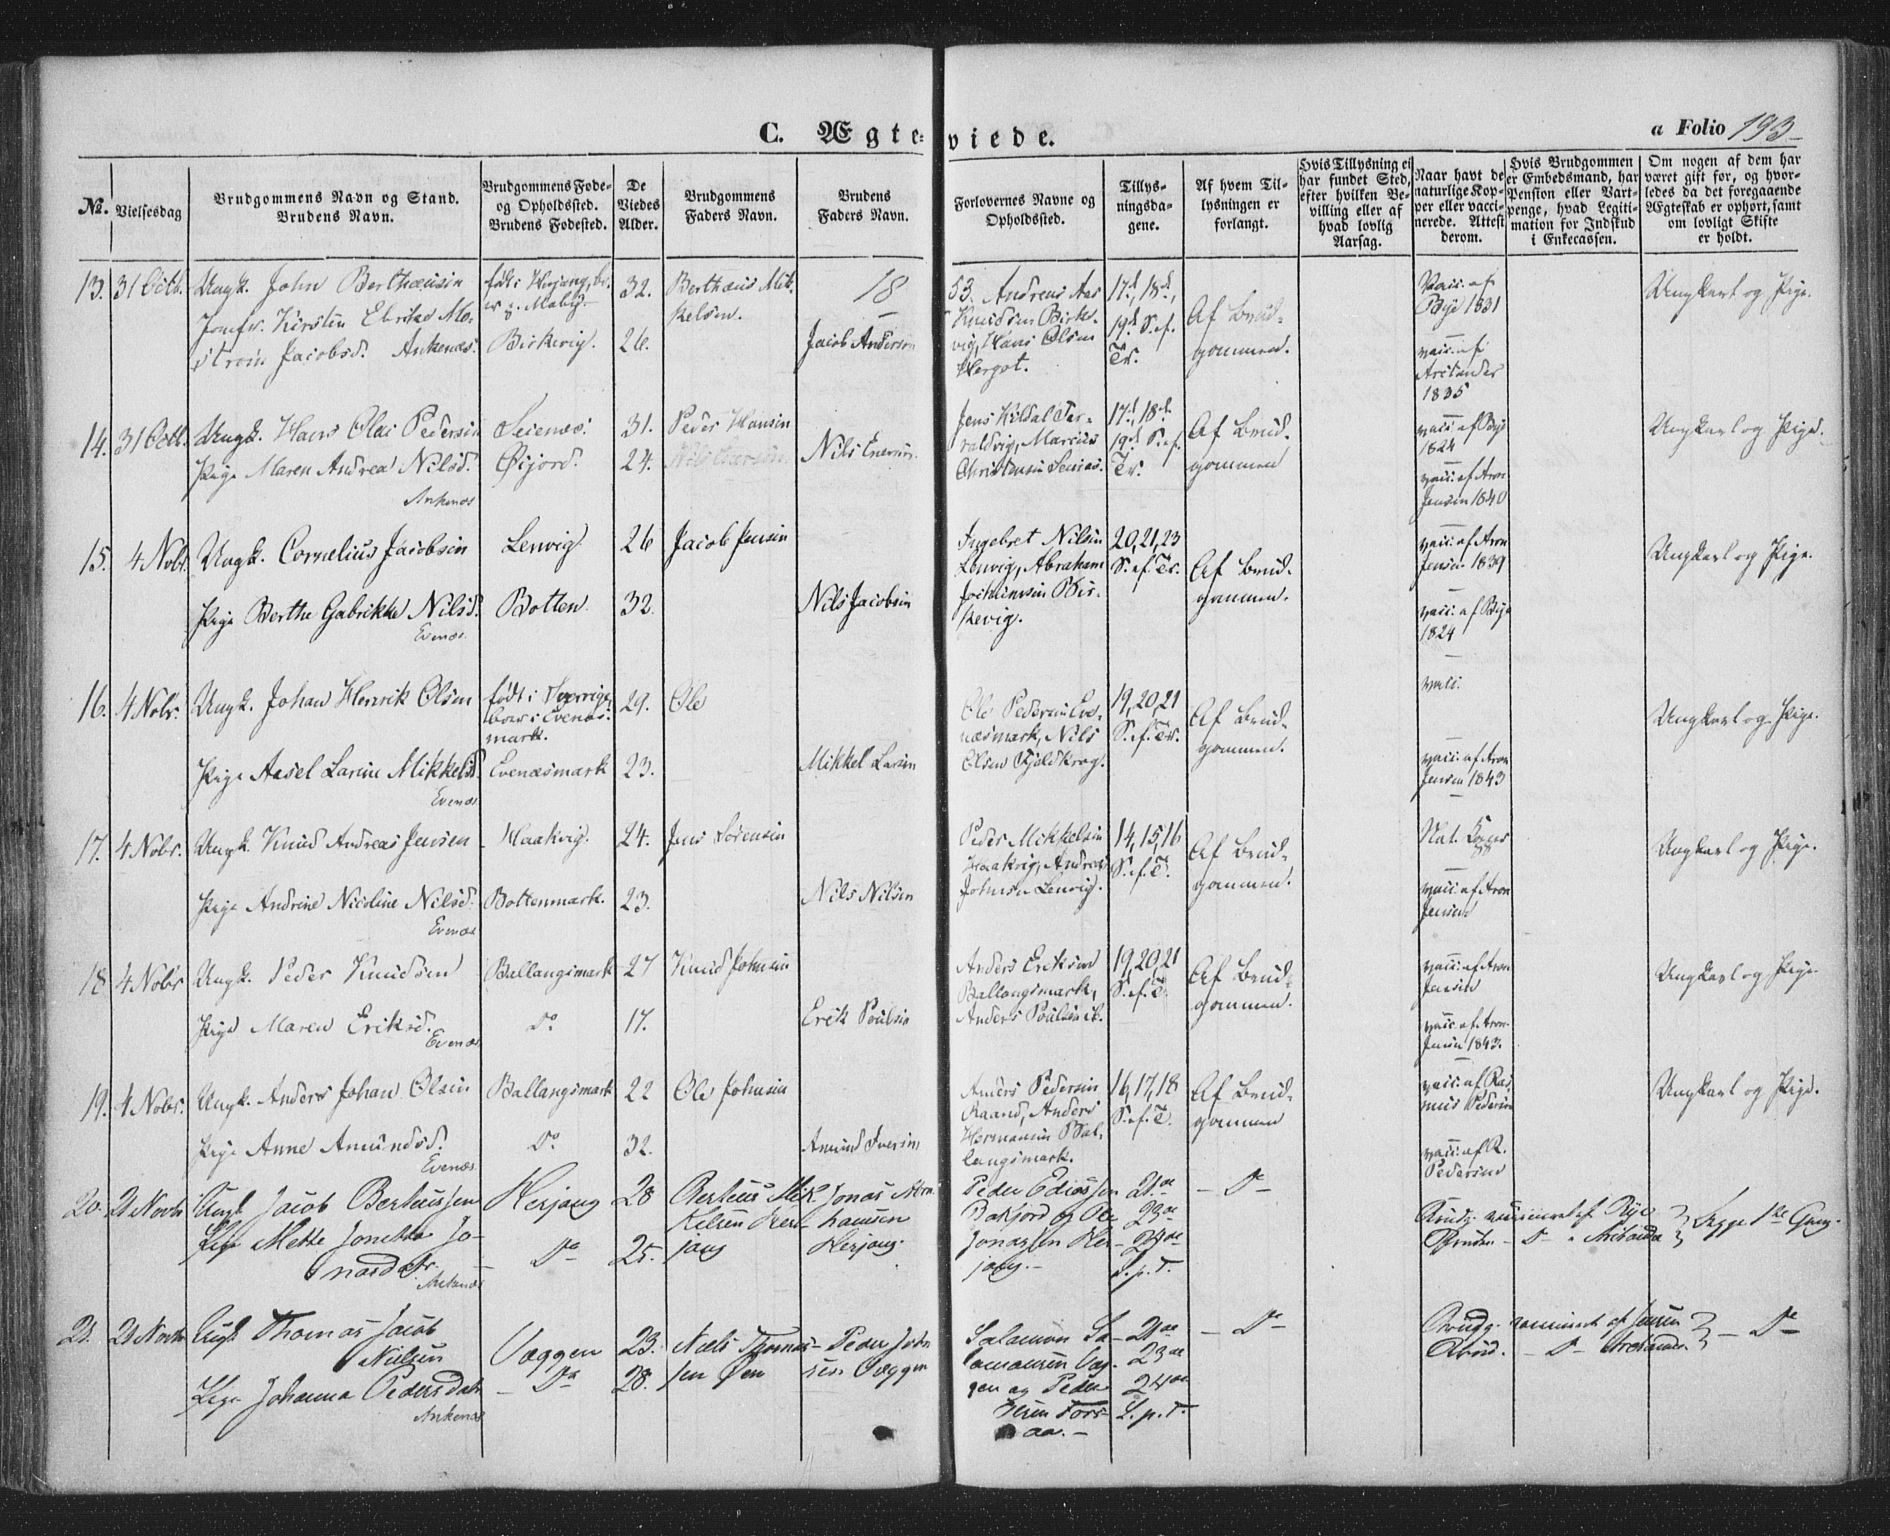 C. Ægte- viede.
a Folio 193
No.
Vielsesdag
Brudgommens Navn og Stand.
Brudens Navn.
Brudgommens Føde-
og Opholdssted.
Brudens Fødested.
De
Viedes
Alder.
Brudgommens
Faders Navn.
Brudens
Faders Navn.
Forlovernes Navne og
Opholdssted.
Tillys-
ningsda-
gene.
Af hvem Til-
lysningen er
forlangt.
Hvis Tillysning ei
har fundet Sted,
efter hvilken Be-
villing eller af
hvad lovlig
Aarsag.
Naar havt de
naturlige Kop-
per eller vacci-
nerede. Attest
derom.
Hvis Brudgommen
er Embedsmand, har
Pension eller Vart-
penge, hvad Legiti-
mation for Indskud
i Enkecassen.
Om nogen af dem har
været gift før, og hvor-
ledes da det foregaaende
Ægteskab er ophørt, samt
om lovligt Skifte
er holdt.
18 53.
13. 31 Octb. Ungk. John Berthæusen
Jomfr. Kirsten
Jacobsd. Ankenæs.
født i Herjang, bo-
Birkvig.
32.
26.
Berthæus Mik-
kelsen.
Jacob Andersen
Andreas Aas
Knudsen Birk-
vig, Hans Olsen
Hergot.
17d, 18d,
19d S. ef.
Tr.
Af Brud-
gommen.
Vacc. af
Bye 1831
vacc. af
Arctander
1835
Ungkarl og Pige.
14. 31 Octb. Ungk. Hans Olai Pedersen
Pige Maren Andrea Nilsd.
Ankenæs
Seienæs
Øijord.
31.
24.
Peder Hansen
Nils Enersen
Nils Enersen.
Jens Kildal Tar-
raldvig, Marcus
Christensen Seinæs.
17d, 18d
19d S. ef.
Tr.
Af Brud-
gommen
vacc. af Bye
1824
vacc. af Aron
Jensen 1840
Ungkarl og Pige.
15. 4 Nobr. Ungk. Cornelius Jacobsen
Pige Berthe Gabrikke Nilsd.
Evenæs
Lenvig
Botten.
26
32.
Jacob Jensen
Nils Jacobsen
Ingebret Nilsen
Lenvig, Abraham
Jochumsen Bir-
kevig.
20, 21, 23
S. ef. Tr.
Af Brud-
gommen.
vacc. af Aron
Jensen 1839
vacc. af Bye
1824
Ungkarl og Pige.
16. 4 Nobr. Ungk. Johan Henrik Olsen
Pige Aasel Larine Mikkelsd.
Evenæs
født i Sverrig,
boer i Evenæs-
mark.
Evenæsmark
29.
23.
Ole
Mikkel Larsen
Ole Pedersen Eve-
næsmark, Nils
Olsen Fjeldkrog.
19, 20, 21
S. ef. Tr.
Af Brud-
gommen.
vacc.
vacc. af Aron
Jensen 1843
Ungkarl og Pige.
17. 4 Nobr. Ungk. Knud Andreas Jensen
Pige Andrine Nicoline Nilsd.
Evenæs
Haakvig.
Bottenmark.
24.
23.
Jens Sørensen
Nils Nilsen
Peder Mikkelsen
Haakvig, Andreas
Johnsen Lenvig.
14, 15, 16
S. ef. T.
Af Brud-
gommen.
Nat. Kopper
vacc. af Aron
Jensen
Ungkarl og Pige.
18 4 Nobr Ungk. Peder Knudsen
Pige Maren Eriksd.
Evenæs
Ballangsmark
Do
27
17.
Knud Johnsen
Erik Poulsen
Anders Eriksen
Ballangsmark,
Anders Poulsen ib.
19, 20, 21
S. ef. T.
Af Brud-
gommen.
vacc. af Aron
Jensen
vacc. af Aron
Jensen 1843.
Ungkarl og Pige.
19. 4 Nobr. Ungk. Anders Johan Olsen
Pige Anne Amundsd.
Evenæs
Ballangsmark
Do
22
32.
Ole Johnsen
Amund Iversen
Anders Pedersen
Raand, Anders
Hermansen Bal-
langsmark.
16, 17, 18
S. ef. T.
Af Brud-
gommen
vacc. af Ras-
mus Pedersen
vacc. af R.
Pedersen
Ungkarl og Pige.
20. 21 Novbr Ungk. Jacob Bertheussen
Pige Mette Jonetta Jo-
nasdatr.
Ankenæs
Herjang
Do
28
25.
Bertheus Mik-
kelsen Her-
jang
Jonas Abra-
hamsen
Herjang.
Peder
og Ole
Jonassen Her-
jang.
21de
23de
24de
S. p. T.
Do
Brudg. vaccineret af Bye
Bruden Do
Begge 1ste Gang.
21. 21 Novbr Ungk. Thomas Jacob
Nielsen
Pige Johanna Pedersdatr
Ankenæs
Væggen
Do
23.
28.
Niels Thomas-
sen Øen
Peder John-
sen Væggen
Salamon Sa-
lamonsen Væg-
gen og Peder
Iversen Tors-
aa.
21de
23de
24de
S. p. T.
Do
Brudg. vaccineret af Jensen
Brud. Do Arctander
Do